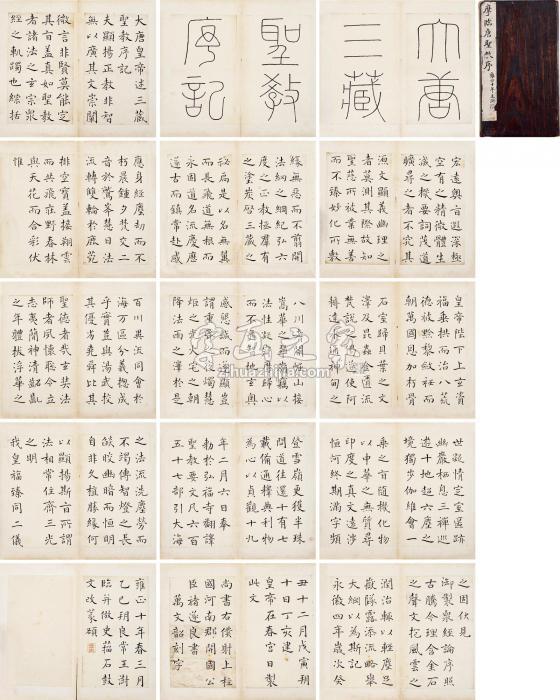 摩臨唐聖教序
大唐
三藏
聖教
序記
大唐皇帝述三藏
聖教序記
夫顯揚正教非智
無以廣其文崇闡
微言非賢莫能定
其旨蓋真如聖教
者諸法之玄宗衆
經之軌躅也綜括
宏遠奧旨遐深極
空有之精微體生
滅之機要詞茂道
曠尋之者不究其
源文顯義幽理之
者莫測其際故知
聖慈所被業無善
而不臻妙化所敷
緣無惡而不翦開
法網之綱紀弘六
度之正教拯羣有
之塗炭啓三藏之
秘扃是以名無翼
而長飛道無根而
永固道名流慶歷
遂古而鎮常赴感
應身經塵劫而不
朽晨鐘夕梵交二
音於鷲峯慧日法
流轉雙輪於鹿菀
排空寶蓋接翔雲
而共飛莊野春林
與天花而合彩伏
惟
皇帝陛下上玄資
福垂拱而治八荒
德被黔黎斂衽而
朝萬國恩加朽骨
石室歸貝葉之文
澤及昆蟲金匱流
梵說之偈遂使阿
耨達水通神甸之
八川耆闍崛山接
嵩華之翠嶺竊以
法性凝寂靡歸心
而不通智地玄奧
感懇誠而遂顯豈
謂重昏之夜燭慧
炬之光火宅之朝
降法雨之澤於是
百川異流同會於
海萬區分義揔成
乎實豈與湯武校
其優劣堯舜比其
聖德者哉玄奘法
師者夙懷聰令立
志夷簡神清齠齔
之年體拔浮華之
世凝情定室匿跡
幽巖栖息三禪巡
遊十地超六塵之
境獨步伽維會一
乘之旨隨機化物
以中華之無質尋
印度之真文遠涉
恒河終期滿字頻
登雪嶺更獲半珠
問道往還十有七
載備通釋典利物
為心以貞觀十九
年二月六日奉
勑於弘福寺翻譯
聖教要文凡六百
五十七部引大海
之法流洗塵勞而
不竭傳智燈之長
燄皎幽暗而恒明
自非久植勝緣何
以顯揚斯旨所謂
法相常住齊三光
之明
我皇福臻同二儀
之固伏見
御製衆經論序照
古騰今理含金石
之聲文抱風雲之
潤治輒以輕塵足
嶽墜露添流略舉
大綱以為斯記
永徽四年歲次癸
丑十二月戊寅朔
十日丁亥建
皇帝在春宮日製
此文
尚書右僕射上柱
國河南郡開國公
臣褚遂良書
萬文韶刻字
雍正十年春三月
乙巳朔良常王澍
臨并倣史籀石鼓
文改篆頟
书画之家
zhuazhijia.com